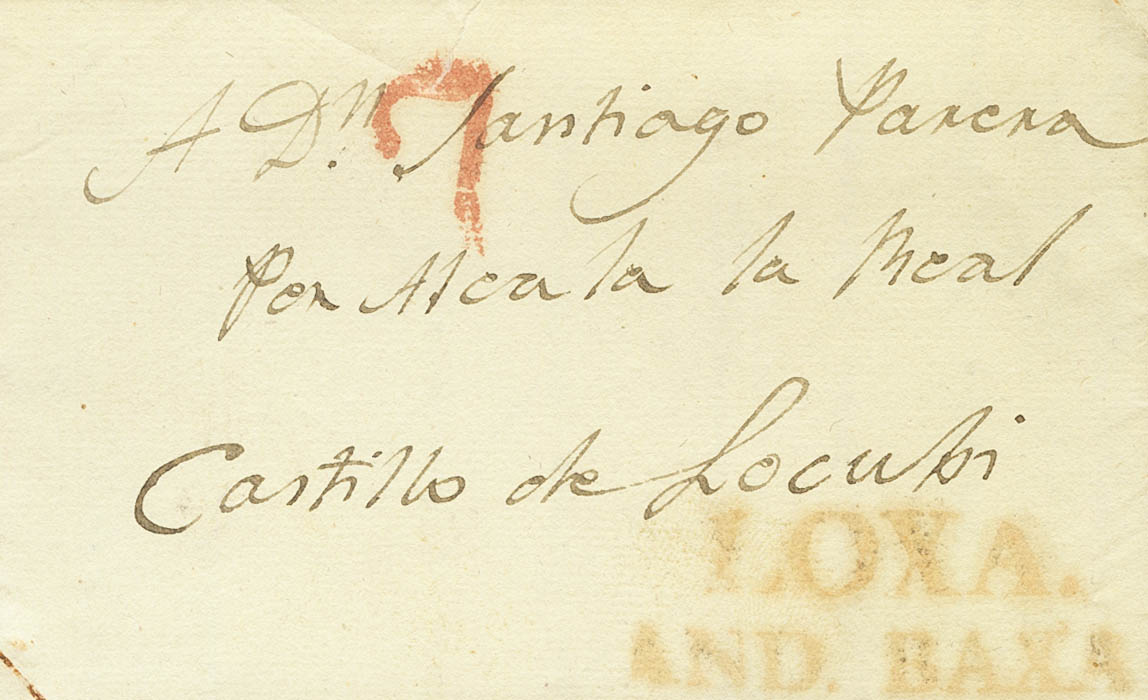 7
A Dn. Santiago Parera
Por Alcala la Real
Castillo de Locubi
LOXA.
AND. BAXA